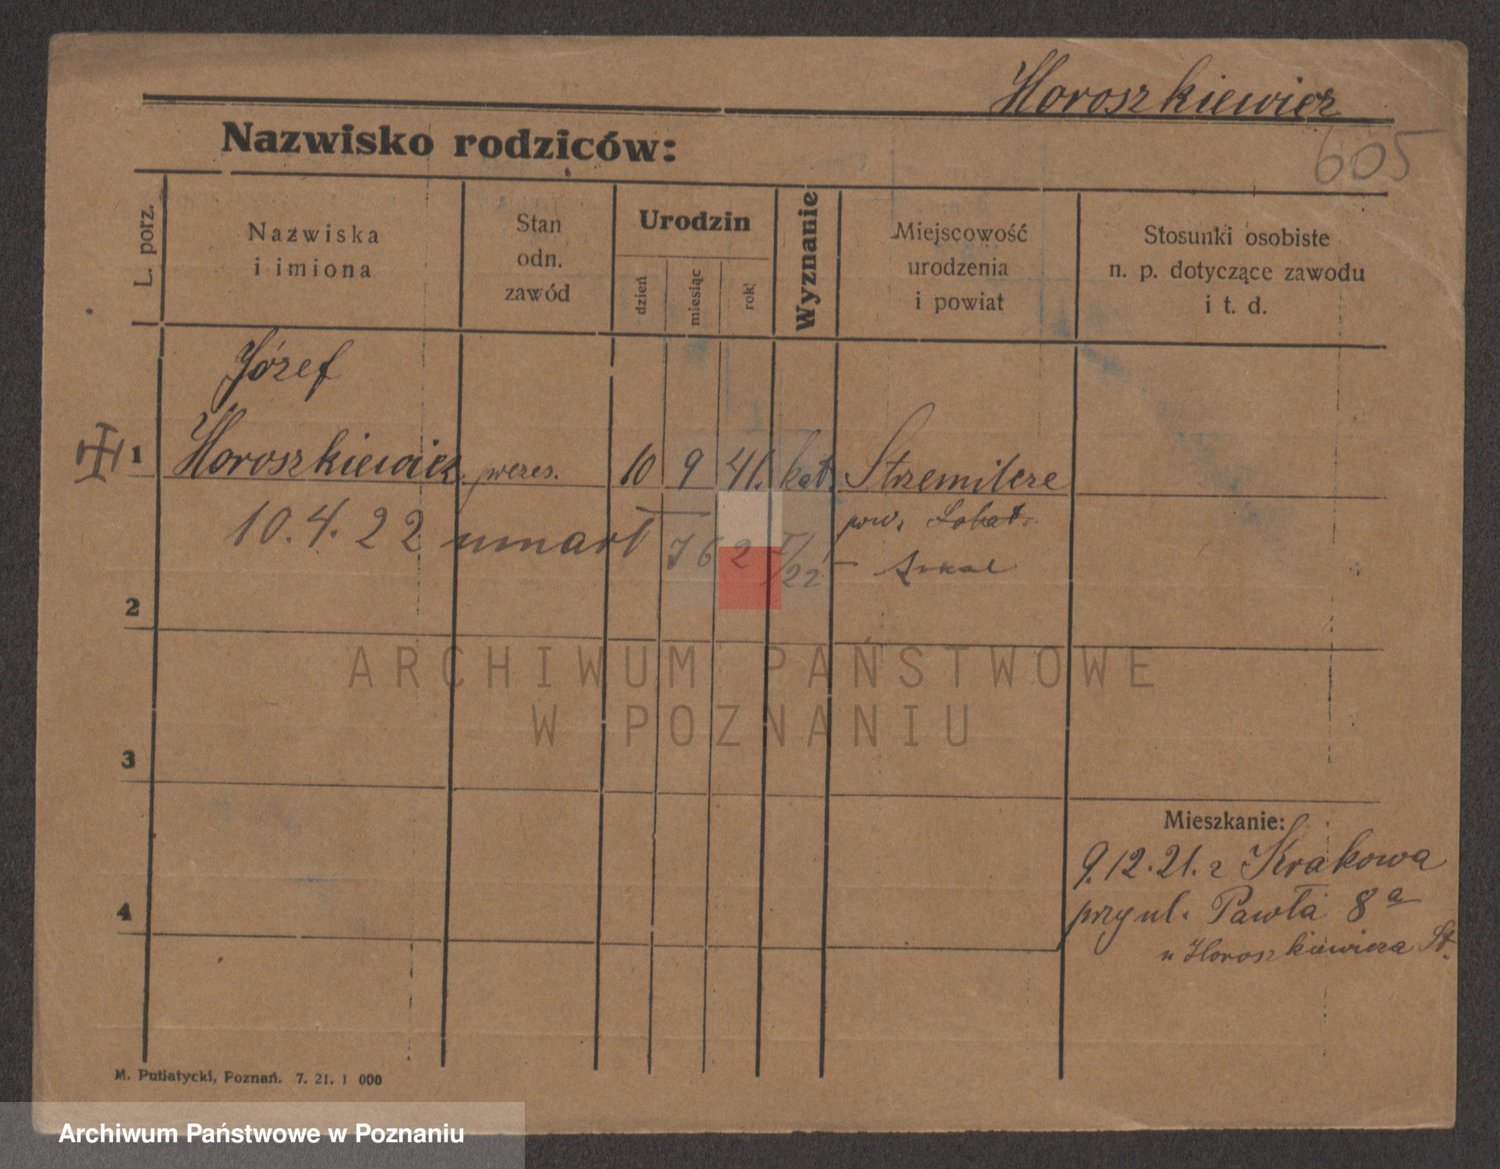 Horoszkiewicz
605
Nazwisko rodziców:
L. porz.
Nazwiska
i imiona
Stan
odn.
zawód
Urodzin
dzień
miesiąc
rok
Wyznanie
Miejscowość
urodzenia
i powiat
Stosunki osobiste
n. p. dotyczące zawodu
i t. d.
Józef
1 Horoszkiewicz prezes. 10 9 41. kat. Strzemilcze
pow. Sokal.
10.4.22 umarł 762 I/22 - Sokal
2
3
4
Mieszkanie:
9.12.21. z Krakowa
przy ul. Pawła 8a
u Horoszkiewicza St.
M. Putiatycki, Poznań. 7. 21. 1 000
ARCHIWUM PAŃSTWOWE
W POZNANIU
Archiwum Państwowe w Poznaniu